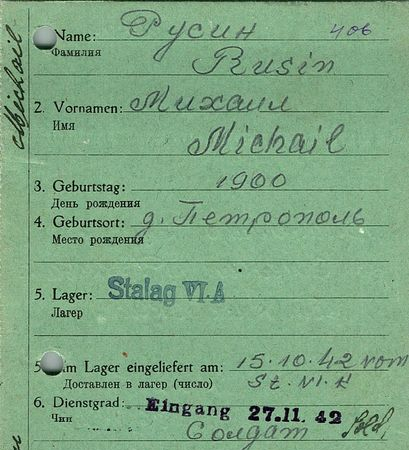 Name: Русин 406
Фамилия Rusin
2. Vornamen: Михаил
Имя Michail
3. Geburtstag: 1900
День рождения
4. Geburtsort: д. Петрополь
Место рождения
5. Lager: Stalag VI.A
Лагер
5 im Lager eingeliefert am: 15.10.42 vom
Доставлен в лагер (число) St. VI.K
6. Dienstgrad: Eingang 27.11. 42
Чин Солдат Sold.
Michail